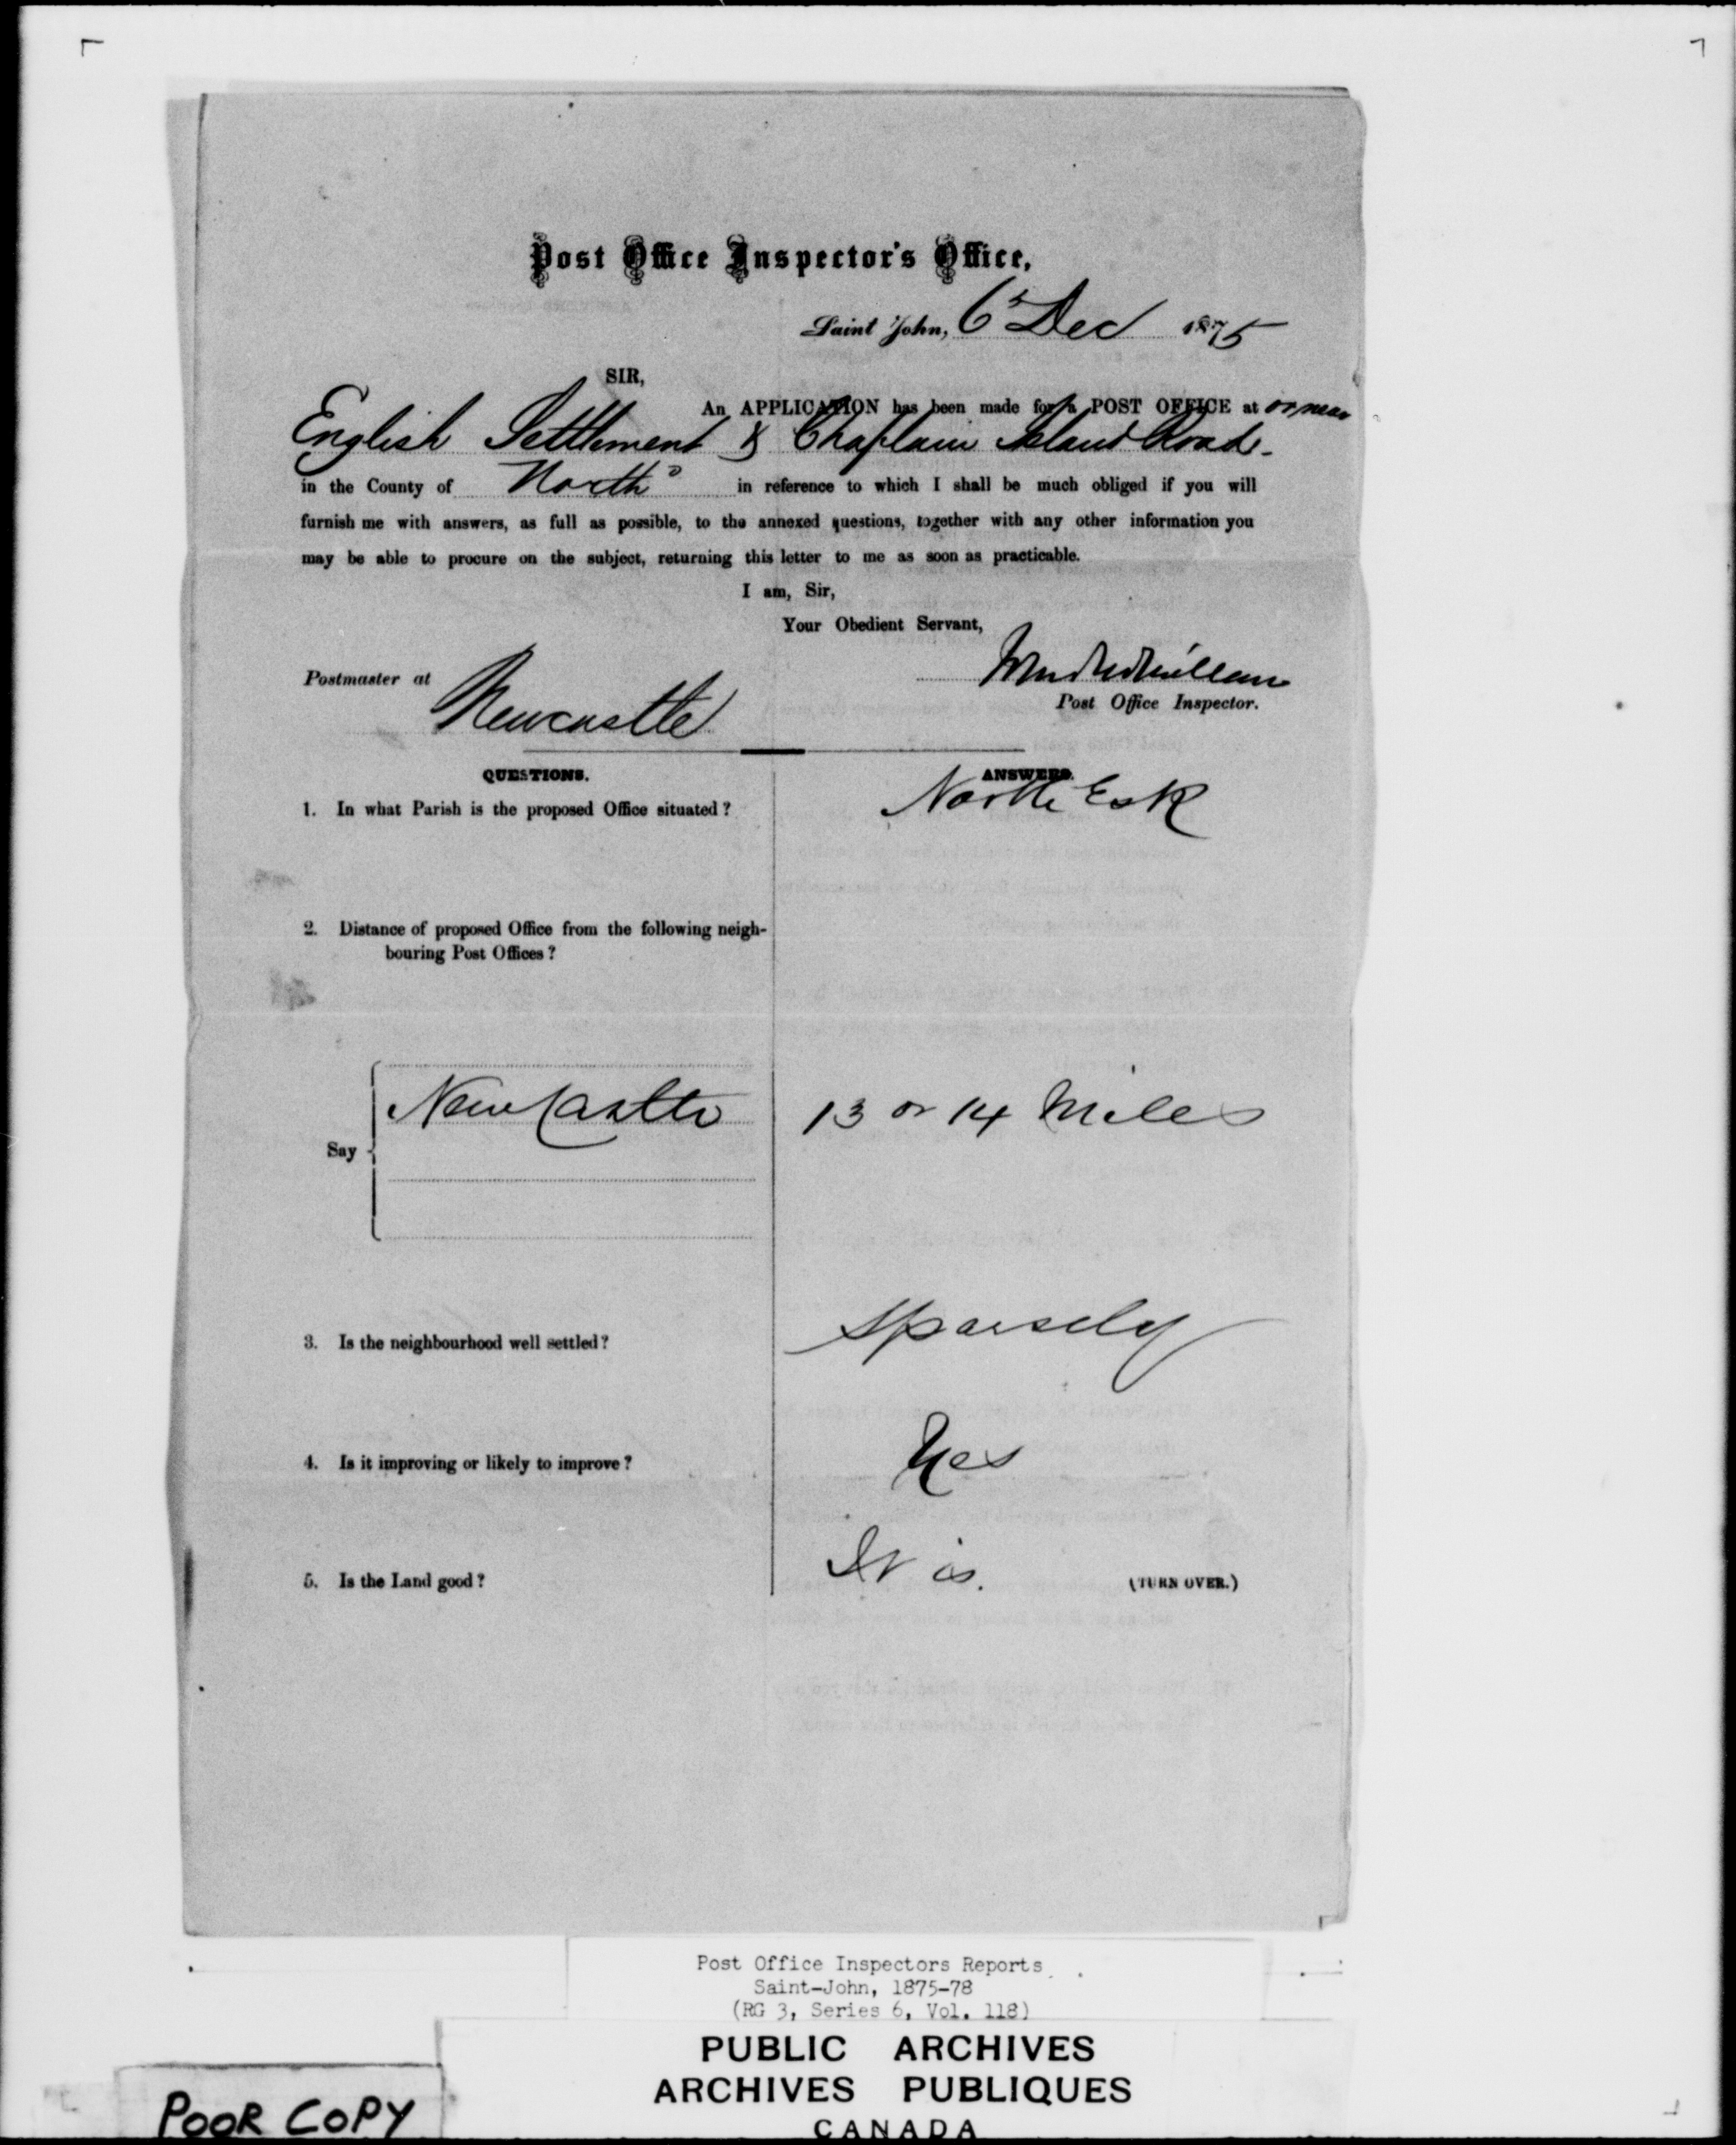 Post Office Inspector's Office,
Saint John, 6 Dec 1875
SIR,
An APPLICATION has been made for a POST OFFICE at or near
English Settlement & Chaplain Island Road.
in the County of North° in reference to which I shall be much obliged if you will
furnish me with answers, as full as possible, to the annexed questions, together with any other information you
may be able to procure on the subject, returning this letter to me as soon as practicable.
I am, Sir,
Your Obedient Servant,
Postmaster at Newcastle
Post Office Inspector.
QUESTIONS. ANSWERS.
1. In what Parish is the proposed Office situated? North Esk
2. Distance of proposed Office from the following neigh-
bouring Post Offices?
Say
NewCastle 13 or 14 Miles
3. Is the neighbourhood well settled? Sparsely
4. Is it improving or likely to improve? Yes
5. Is the Land good? It is. (TURN OVER.)
Post Office Inspectors Reports
Saint-John, 1875-78
(RG 3, Series 6, Vol. 118)
PUBLIC ARCHIVES
ARCHIVES PUBLIQUES
CANADA
POOR COPY